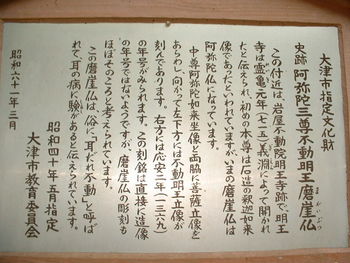 大津市指定文化財
史跡 阿弥陀三尊不動明王磨崖仏
まがいぶつ
この付近は、岩屋不動院明王寺跡で、明王
寺は霊亀元年(七一五)義淵によって開かれ
たと伝えられ、初めの本尊は石造の釈迦如来
像であったといわれていますが、いまの磨崖仏は
阿弥陀仏になっています。
中尊阿弥陀如来坐像と両脇に菩薩立像と
あらわし、向かって左下方には不動明王立像が
刻んであります。右方には応安二年(一三六九)
の年号がみられます。この刻銘は直接に造像
の年号ではないようですが、磨崖仏の彫刻も
ほぼそのころと考えられています。
この磨崖仏は、俗に「耳だれ不動」と呼ば
れて、耳の病に験があると伝えられています。
昭和四十年五月指定
大津市教育委員会
昭和六十一年三月